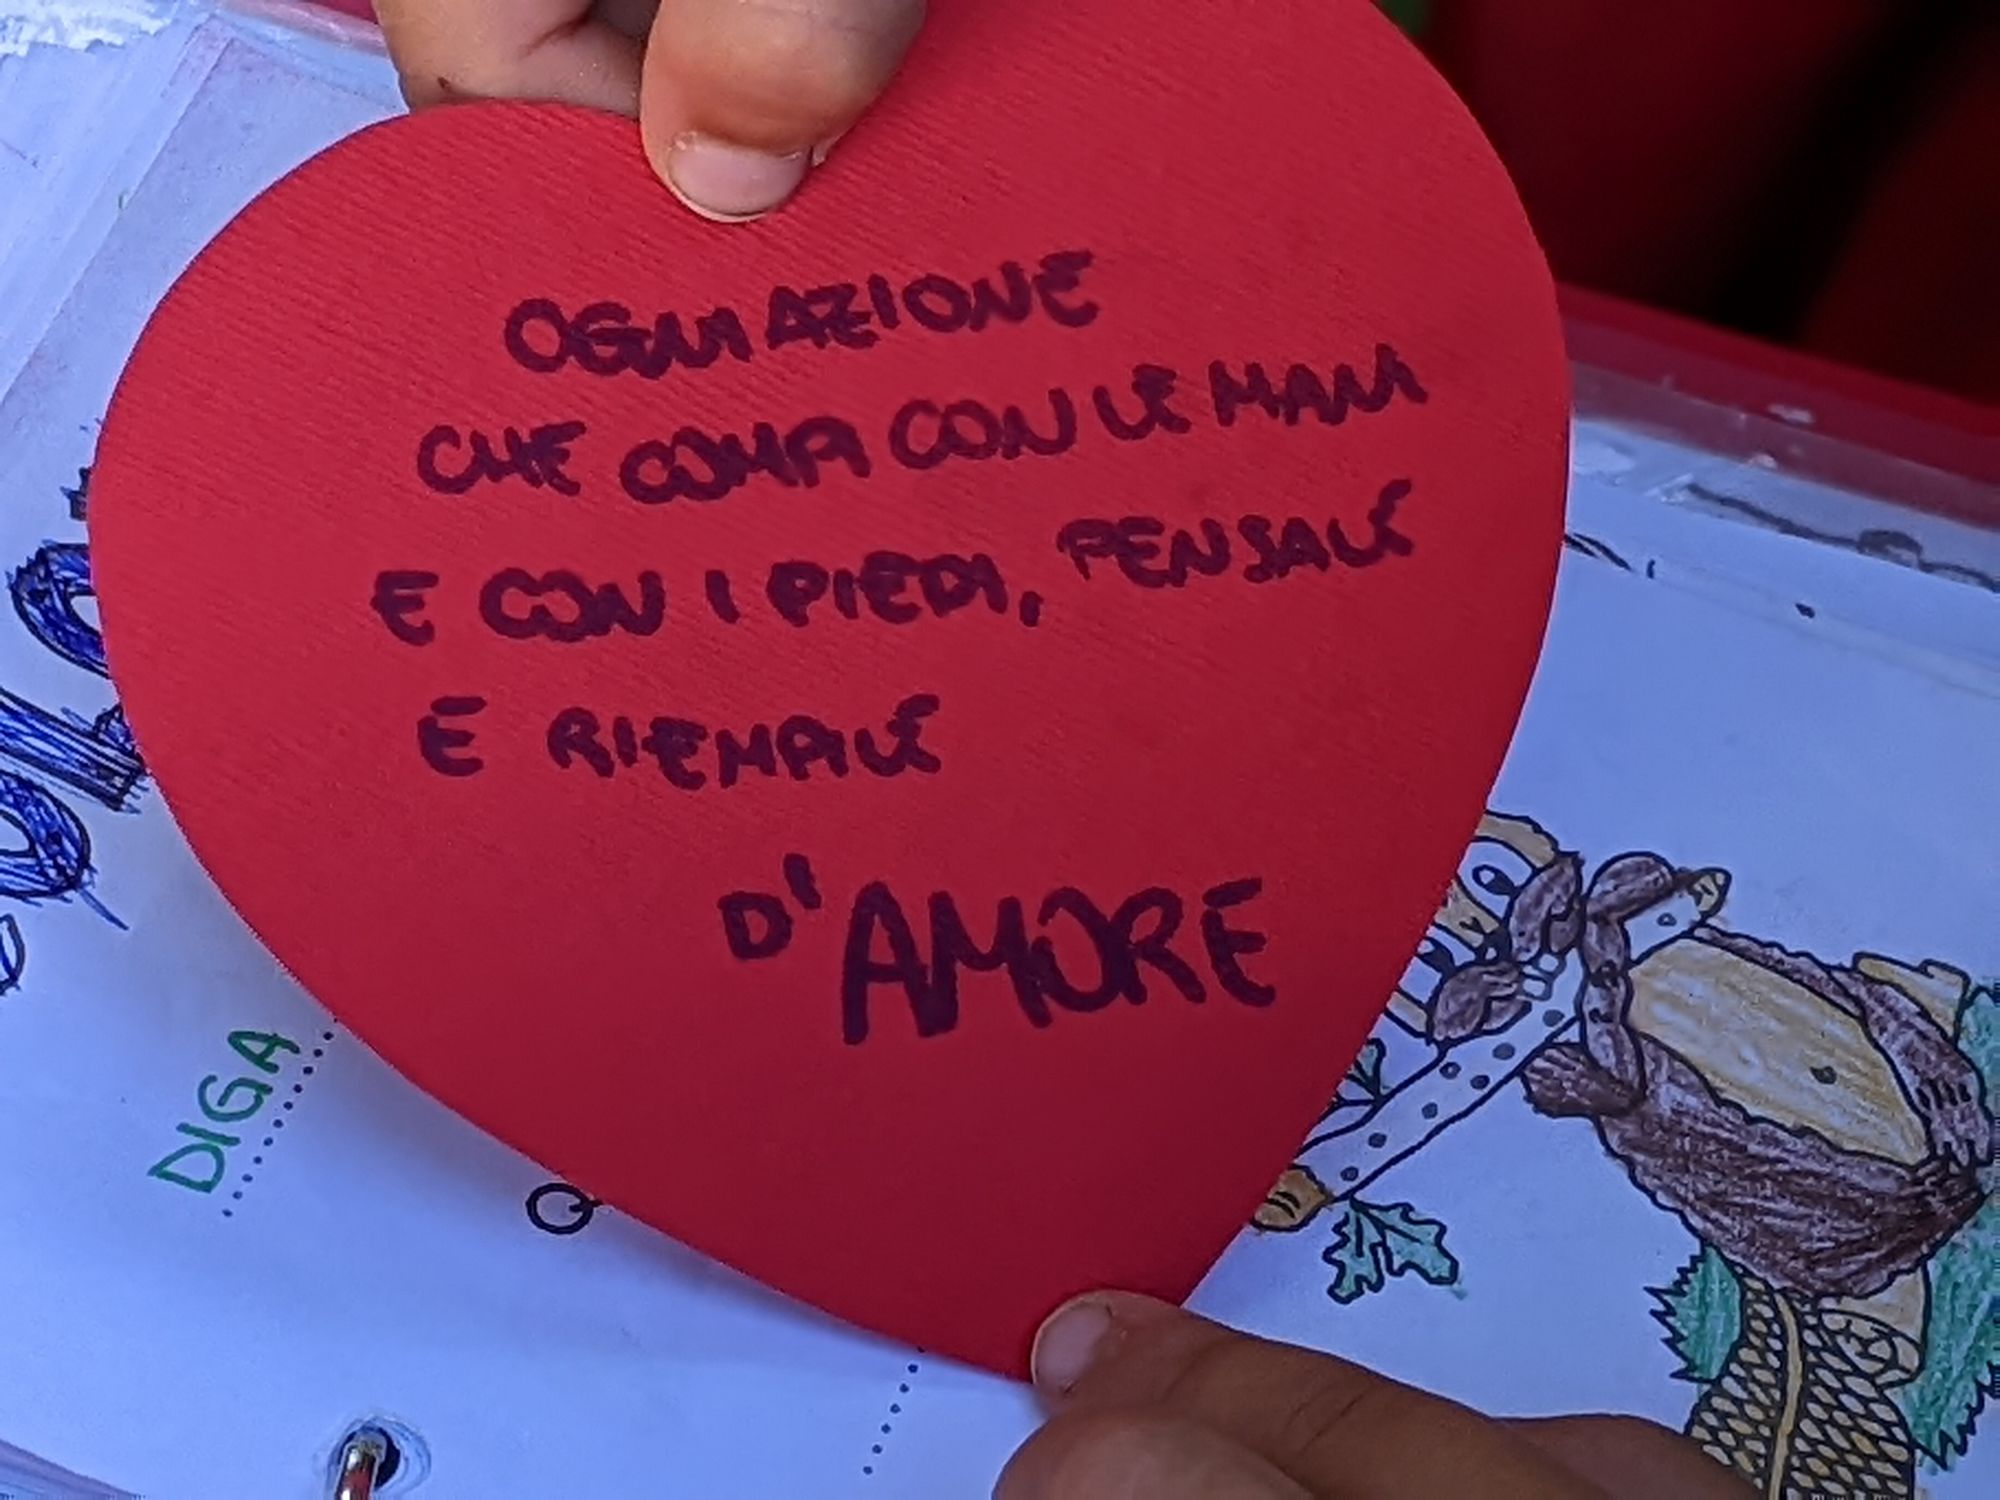 OGNI AZIONE
CHE COMPI CON LE MANI
E CON I PIEDI, PENSALE
E RIEMPILE
D'AMORE
DIGA
Q